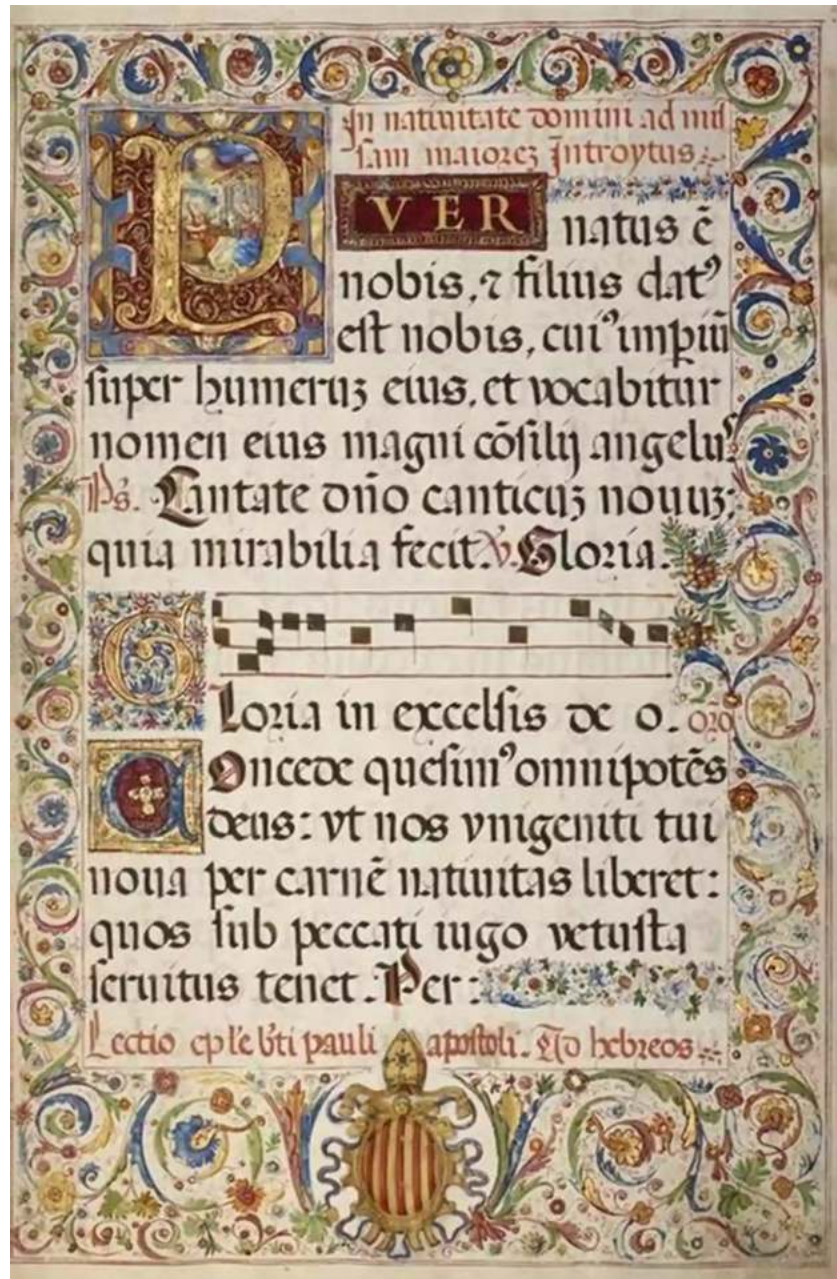 In natiuitate domini ad mis
sam maiorez Introytus
PVER
natus ē
nobis, ⁊ filius datꝰ
est nobis, cuiꝰ imꝑiū
super humeruz eius, et vocabitur
nomen eius magni cōsilij angelꝰ
Ps. Cantate dño canticuz nouuz;
quia mirabilia fecit. V. Gloria.
Gloria in excelsis de o. oro
Concede quesimꝰ omnipotēs
deus: vt nos vnigeniti tui
noua per carnē natiuitas liberet:
quos sub peccati iugo vetusta
seruitus tenet. Per:
Lectio eple bti pauli apostoli. Ad hebreos